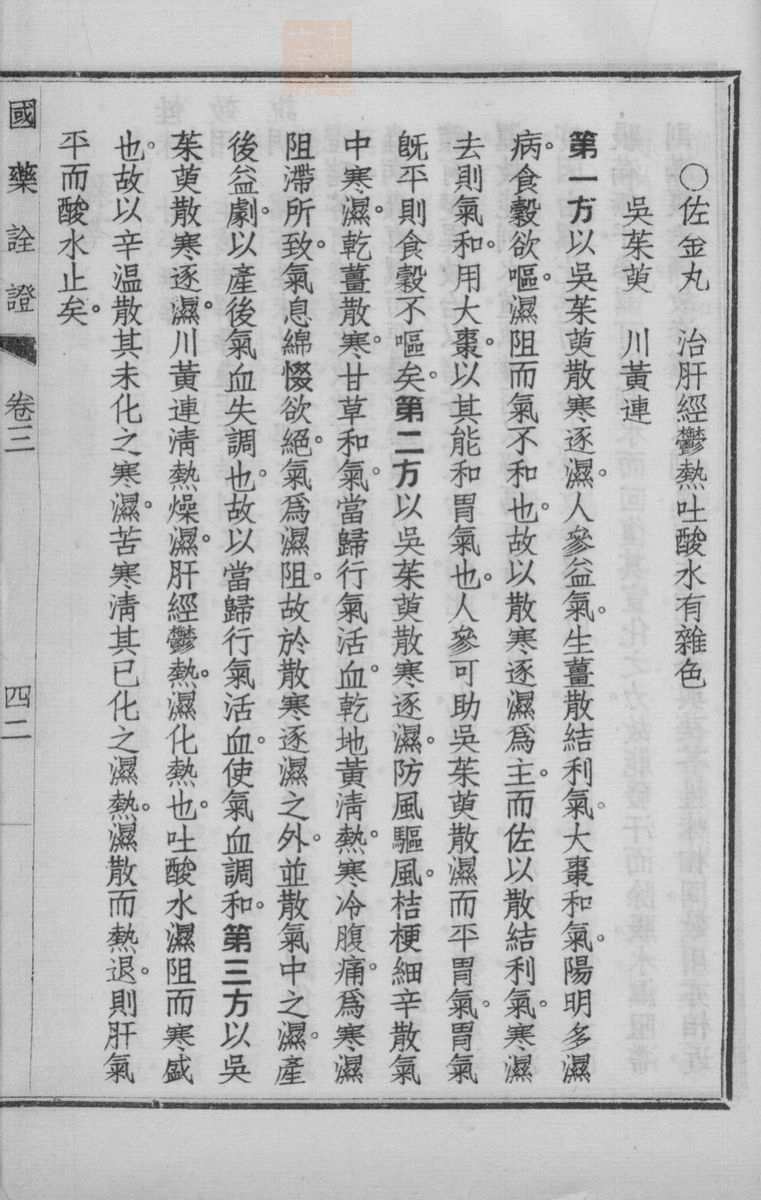 ○佐金丸　治肝經鬱熱吐酸水有雜色
吳茱萸　川黃連
第一方以吳茱萸散寒逐濕。人參益氣。生薑散結利氣。大棗和氣。陽明多濕
病。食穀欲嘔。濕阻而氣不和也。故以散寒逐濕爲主。而佐以散結利氣。寒濕
去則氣和。用大棗。以其能和胃氣也。人參可助吳茱萸散濕而平胃氣。胃氣
旣平則食穀不嘔矣。第二方以吳茱萸散寒逐濕。防風驅風。桔梗細辛散氣
中寒濕。乾薑散寒。甘草和氣。當歸行氣活血。乾地黃淸熱。寒冷腹痛。爲寒濕
阻滯所致。氣息綿惙欲絕。氣爲濕阻。故於散寒逐濕之外。並散氣中之濕。產
後益劇。以產後氣血失調也。故以當歸行氣活血。使氣血調和。第三方以吳
茱萸散寒逐濕。川黃連淸熱燥濕。肝經鬱熱。濕化熱也。吐酸水濕阻而寒盛
也。故以辛溫散其未化之寒濕。苦寒淸其已化之濕熱。濕散而熱退。則肝氣
平而酸水止矣。
國藥詮證　卷三　四二